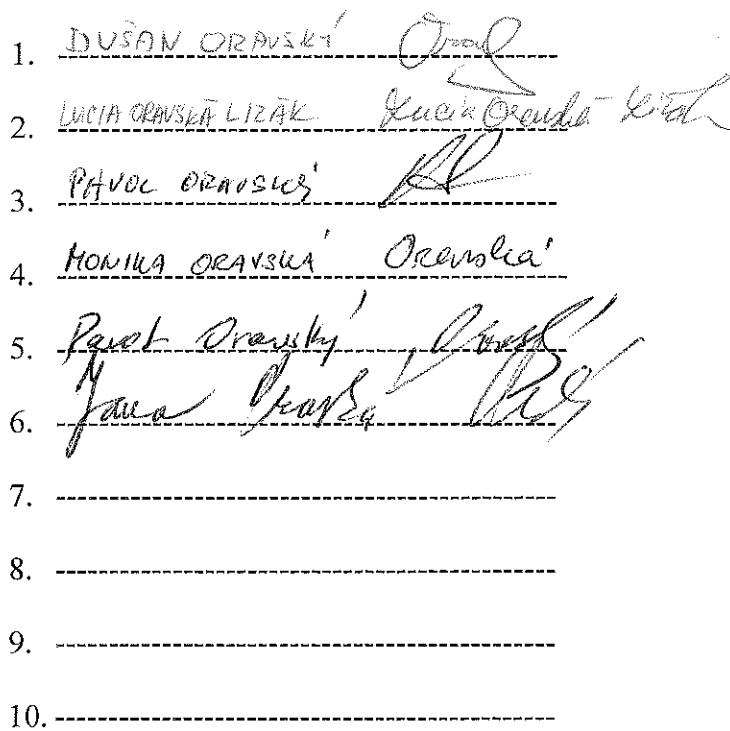 1. DUŠAN ORAVSKÝ
2. LUCIA ORAVSKÁ LIZÁK Lucia Oravská Lizák
3. PAVOL ORAVSKÝ
4. MONIKA ORAVSKÁ Oravská
5. Pavol Oravský
6. Jana Oravská
7.
8.
9.
10.